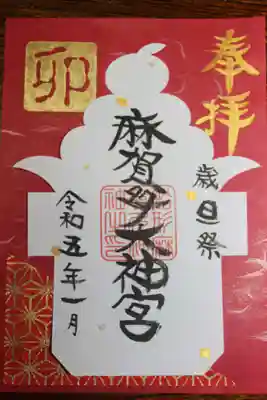 奉拝
歳旦祭
麻賀多大神宮
令和五年一月
卯